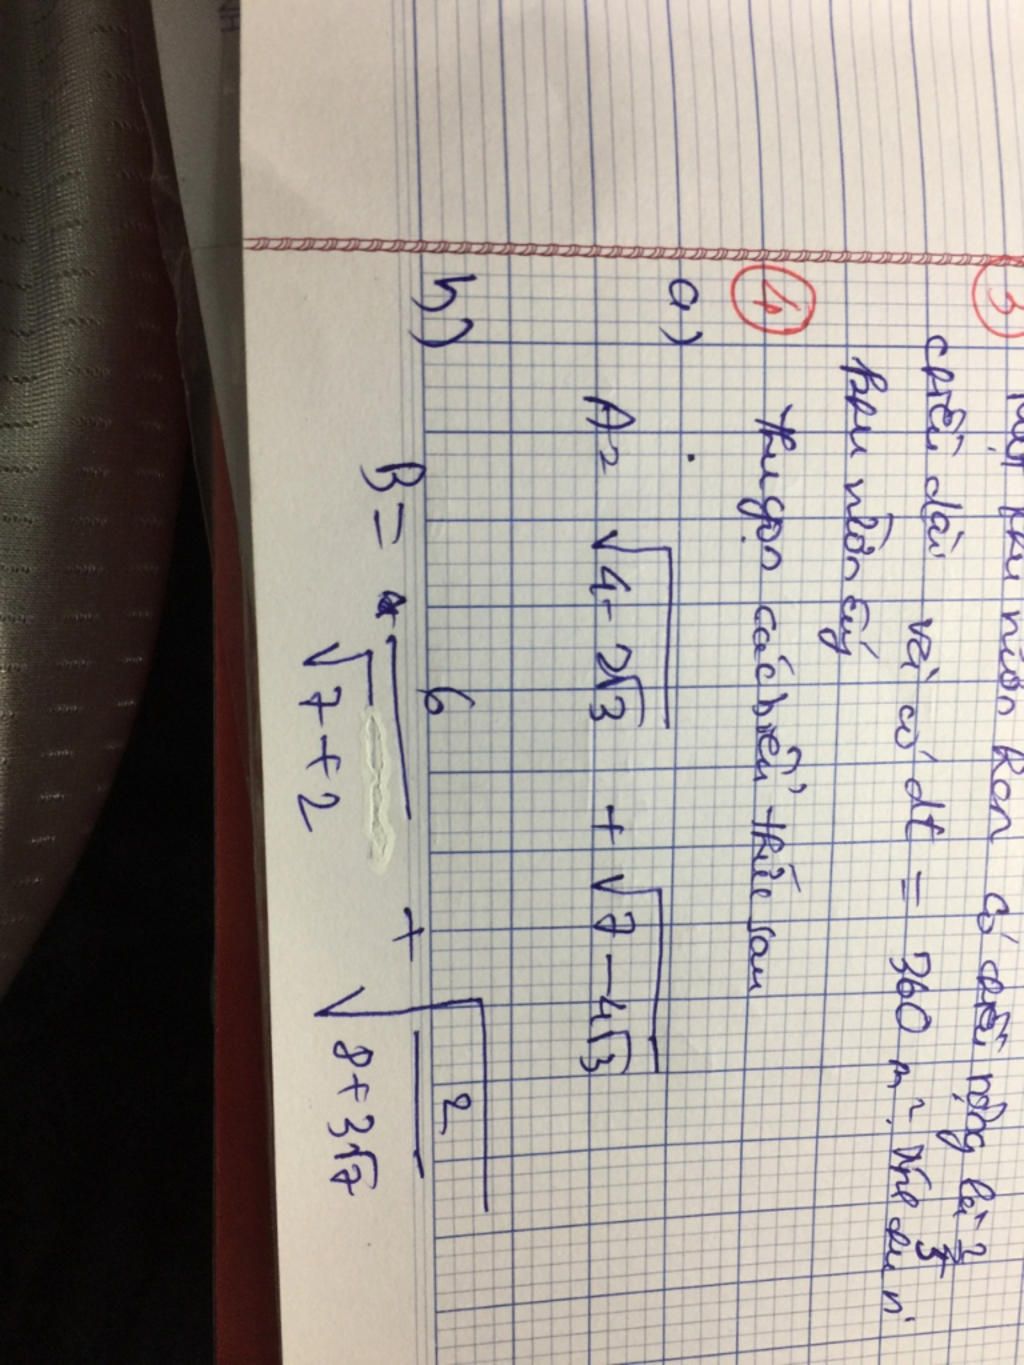 3 khu vườn hcn có chiều rộng là 2/5
chiều dài và có dt = 360 m², tính chu vi
khu vườn ấy
4 Thu gọn các biểu thức sau
a)
A = √(4 - 2√3) + √(7 - 4√3)
b)
B = 6/(√7 + 2) + √(2/(8 + 3√7))